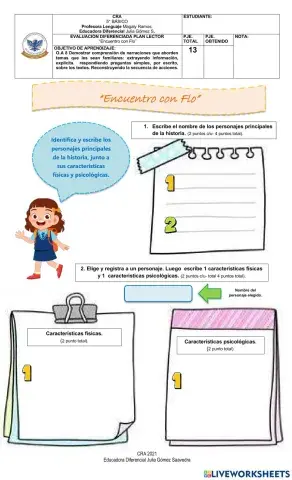 CRA
5° BÁSICO
Profesora Lenguaje Magaly Ramos
Educadora Diferencial Julia Gómez S.
EVALUACIÓN DIFERENCIADA PLAN LECTOR
"Encuentro con Flo"
ESTUDIANTE:
PJE. TOTAL
PJE. OBTENIDO
NOTA:
13
OBJETIVO DE APRENDIZAJE:
O.A 6 Demostrar comprensión de narraciones que aborden
temas que les sean familiares: extrayendo información,
explícita respondiendo preguntas simples, por escrito,
sobre los textos. Reconstruyendo la secuencia de acciones.
"Encuentro con Flo"
Identifica y escribe los
personajes principales
de la historia, junto a
sus características
físicas y psicológicas.
1. Escribe el nombre de los personajes principales
de la historia. (2 puntos c/u- 4 puntos total).
1
2
2. Elige y registra a un personaje. Luego escribe 1 características físicas
y 1 características psicológicas. (2 puntos c/u- total 4 puntos total).
Nombre del
personaje elegido.
Características físicas.
(2 punto total).
1
Características psicológicas.
(2 punto total).
1
CRA 2021
Educadora Diferencial Julia Gómez Saavedra
LIVEWORKSHEETS